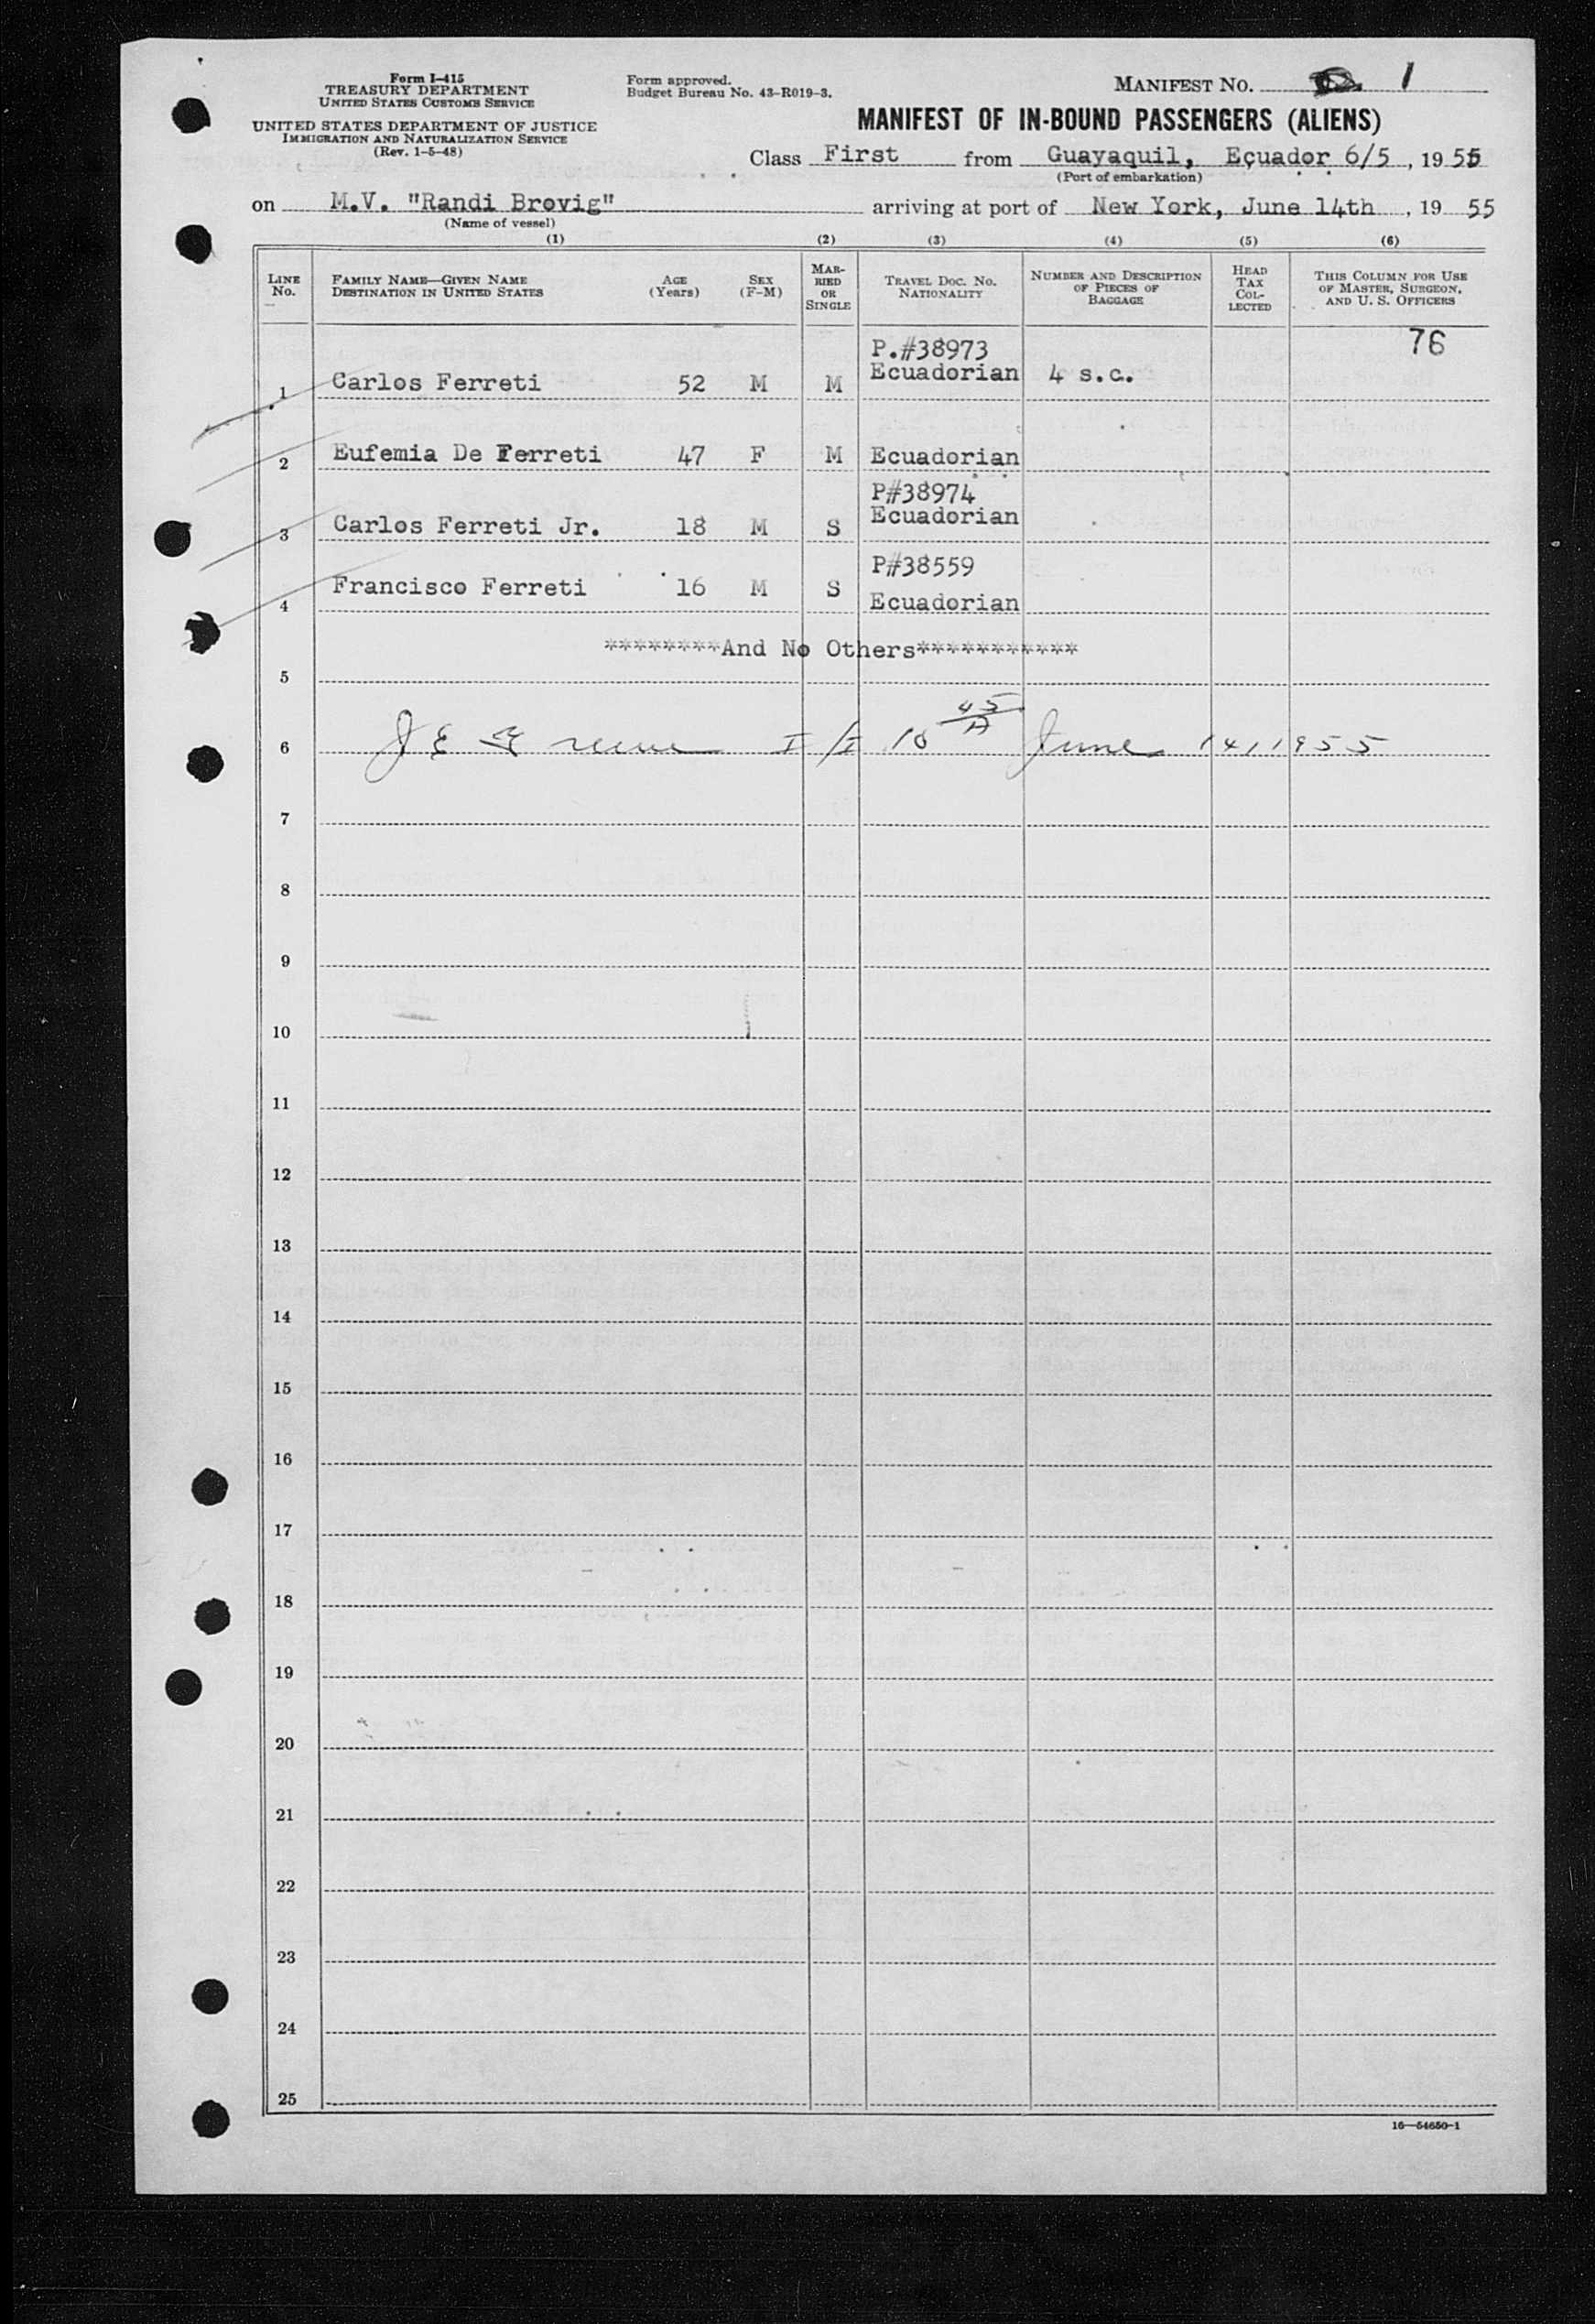 Form I-415
TREASURY DEPARTMENT
UNITED STATES CUSTOMS SERVICE
UNITED STATES DEPARTMENT OF JUSTICE
IMMIGRATION AND NATURALIZATION SERVICE
(Rev. 1-5-48)
Form approved.
Budget Bureau No. 43-R019-3.
MANIFEST NO. 1
MANIFEST OF IN-BOUND PASSENGERS (ALIENS)
Class First from Guayaquil, Ecuador 6/5, 1955
(Port of embarkation)
on M.V. "Randi Brovig" arriving at port of New York, June 14th, 19 55
(Name of vessel)
(1) (2) (3) (4) (5) (6)
LINE No. FAMILY NAME—GIVEN NAME DESTINATION IN UNITED STATES AGE (Years) SEX (F-M) MARRIED OR SINGLE TRAVEL DOC. NO. NATIONALITY NUMBER AND DESCRIPTION OF PIECES OF BAGGAGE HEAD TAX COLLECTED THIS COLUMN FOR USE OF MASTER, SURGEON, AND U. S. OFFICERS
76
P.#38973
1 Carlos Ferreti 52 M M Ecuadorian 4 s.c.
2 Eufemia De Ferreti 47 F M Ecuadorian
P#38974
3 Carlos Ferreti Jr. 18 M S Ecuadorian
P#38559
4 Francisco Ferreti 16 M S Ecuadorian
********And No Others***********
5
6 J E Greene I/I 10 45/A June 14, 1955
7
8
9
10
11
12
13
14
15
16
17
18
19
20
21
22
23
24
25
16—54650-1